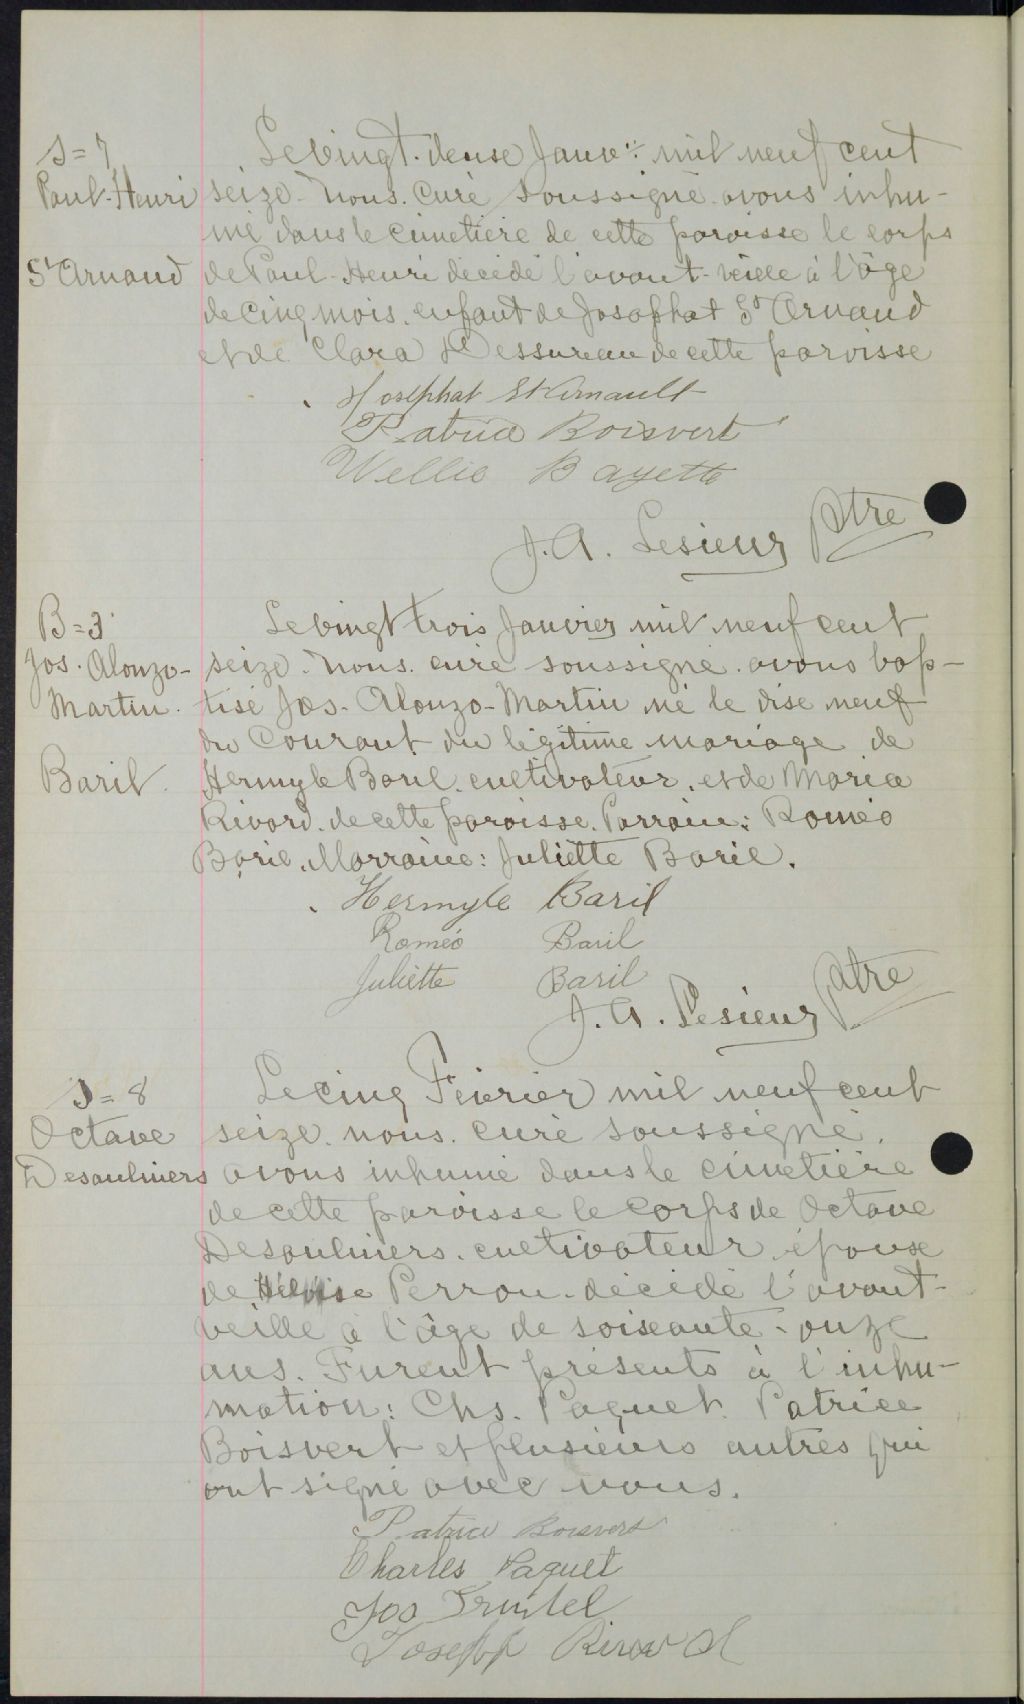 S=7
Paul-Henri
St Arnaud
Le vingt-deuse Janvr mil neuf cent
seize. nous. curé soussigné. avons inhu-
mé dans le cimetière de cette paroisse le corps
de Paul-Henri décédé l'avant-veille à l'âge
de cinq mois. enfant de Josaphat St Arnaud
et de Clara Dessureau de cette paroisse
Josephat St Arnault
Patrice Boisvert
Wellie Bayette
J.A. Lesieur ptre
B=3
Jos. Alonzo-
Martin.
Baril
Le vingt trois Janvier mil neuf cent
seize. nous. curé soussigné. avons bap-
tisé Jos. Alonzo-Martin né le dise neuf
du courant du légitime mariage de
Hermyle Baril. cultivateur. et de Maria
Rivard. de cette paroisse. Parrain: Roméo
Baril. Marraine: Juliette Baril.
Hermyle Baril
Roméo Baril
Juliette Baril
J. A. Lesieur ptre
S=8
Octave
Desaulniers
Le cinq Février mil neuf cent
seize. nous. curé soussigné.
avons inhumé dans le cimetière
de cette paroisse le corps de Octave
Desaulniers. cultivateur. épouse
de Perron. décédé l'avant-
veille à l'âge de soiseante-onze
ans. Furent présents à l'inhu-
mation: Chs. Paquet. Patrice
Boisvert et plusieurs autres qui
ont signé avec nous.
Patrice Boisvert
Charles Paquet
Jos Trudel
Joseph Rivard